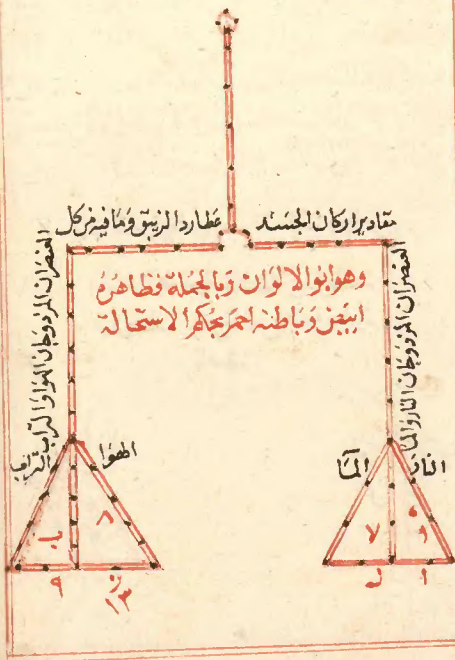 مقادير اركان الجسد
عطارد الزيبق وما فيه من كل
وهو ابو الالوان وبالجملة فظاهره
ابيض وباطنه احمر بحكم الاستحالة
العنصران المزدوجان النار والما
العنصران المزدوجان الهوا والتراب
النار
الما
الهوا
التراب
٨
٩
١٣